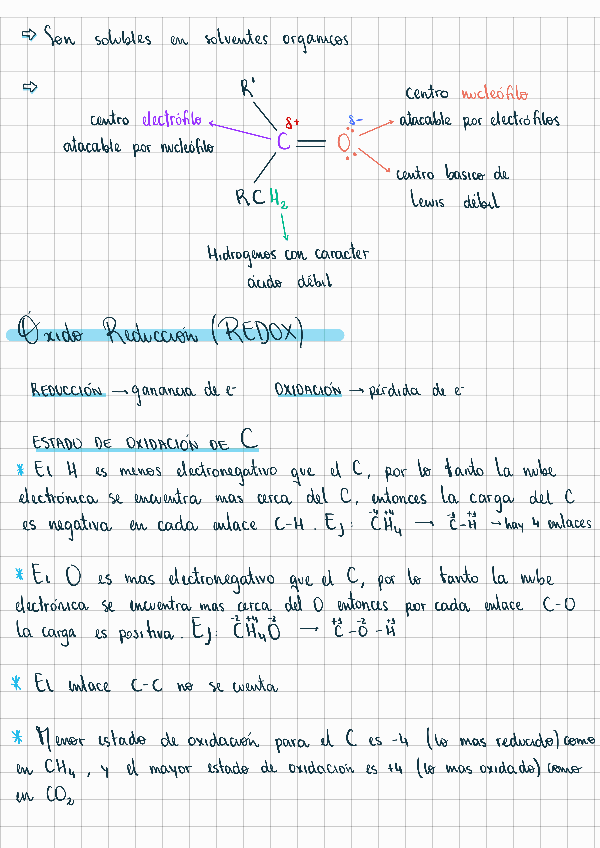 ⇨ Son solubles en solventes organicos
⇨
R'
centro nucleófilo
centro electrófilo
δ+
δ-
atacable por electrófilos
atacable por nucleófilo
C = O
centro basico de
Lewis débil
RCH₂
Hidrogenos con caracter
ácido débil
Óxido Reducción (REDOX)
REDUCCIÓN → ganancia de e⁻ OXIDACIÓN → pérdida de e⁻
ESTADO DE OXIDACIÓN DE C
* El H es menos electronegativo que el C, por lo tanto la nube
electrónica se encuentra mas cerca del C, entonces la carga del C
es negativa en cada enlace C-H. Ej: CH₄ → C-H → hay 4 enlaces
* El O es mas electronegativo que el C, por lo tanto la nube
electrónica se encuentra mas cerca del O entonces por cada enlace C-O
la carga es positiva. Ej: CH₄O → C-O-H
* El enlace C-C no se cuenta
* Menor estado de oxidación para el C es -4 (lo mas reducido) como
en CH₄, y el mayor estado de oxidación es +4 (lo mas oxidado) como
en CO₂